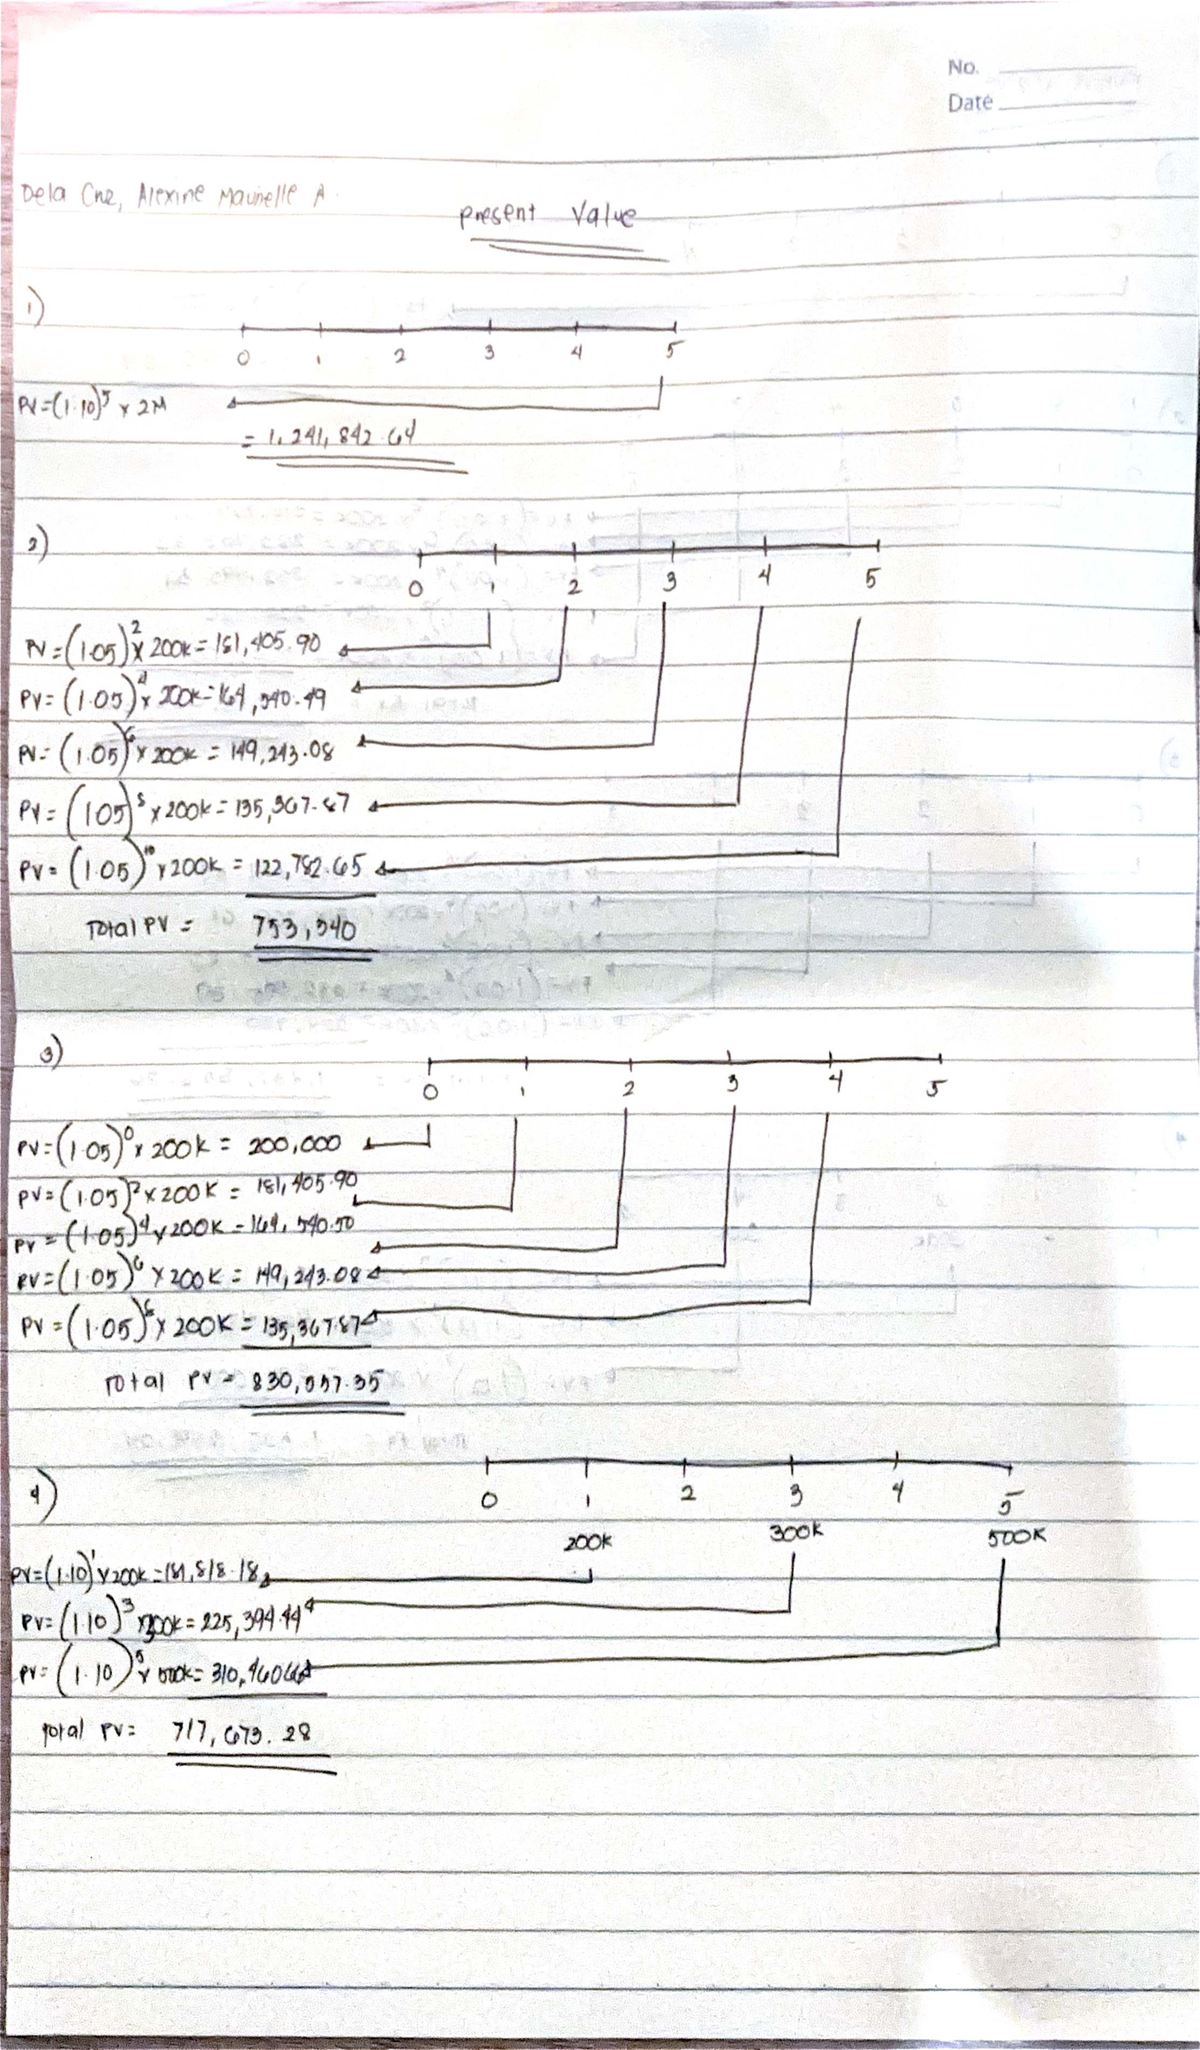 No.
Date
Dela Cruz, Alexine Maurielle A.
Present Value
1)
0 1 2 3 4 5
PV=(1.10)^5 x 2M
= 1,241,842.64
2)
0 1 2 3 4 5
PV=(1.05)^2 x 200K=181,405.90
PV=(1.05)^4 x 200K=164,540.49
PV=(1.05)^6 x 200K = 149,243.08
PV=(1.05)^8 x 200K=135,367.87
PV=(1.05)^10 x 200K = 122,782.65
Total PV = 753,340
3)
0 1 2 3 4 5
PV=(1.05)^0 x 200K = 200,000
PV=(1.05)^2 x 200K = 181,405.90
PV=(1.05)^4 x 200K=164,540.50
PV=(1.05)^6 x 200K = 149,243.08
PV=(1.05)^8 x 200K=135,367.87
Total PV = 830,557.35
4)
0 1 2 3 4 5
200K 300K 500K
PV=(1.10)^1 x 200K=181,818.18
PV=(1.10)^3 x 300K=225,394.44
PV=(1.10)^5 x 500K= 310,460.66
Total PV= 717,673.28